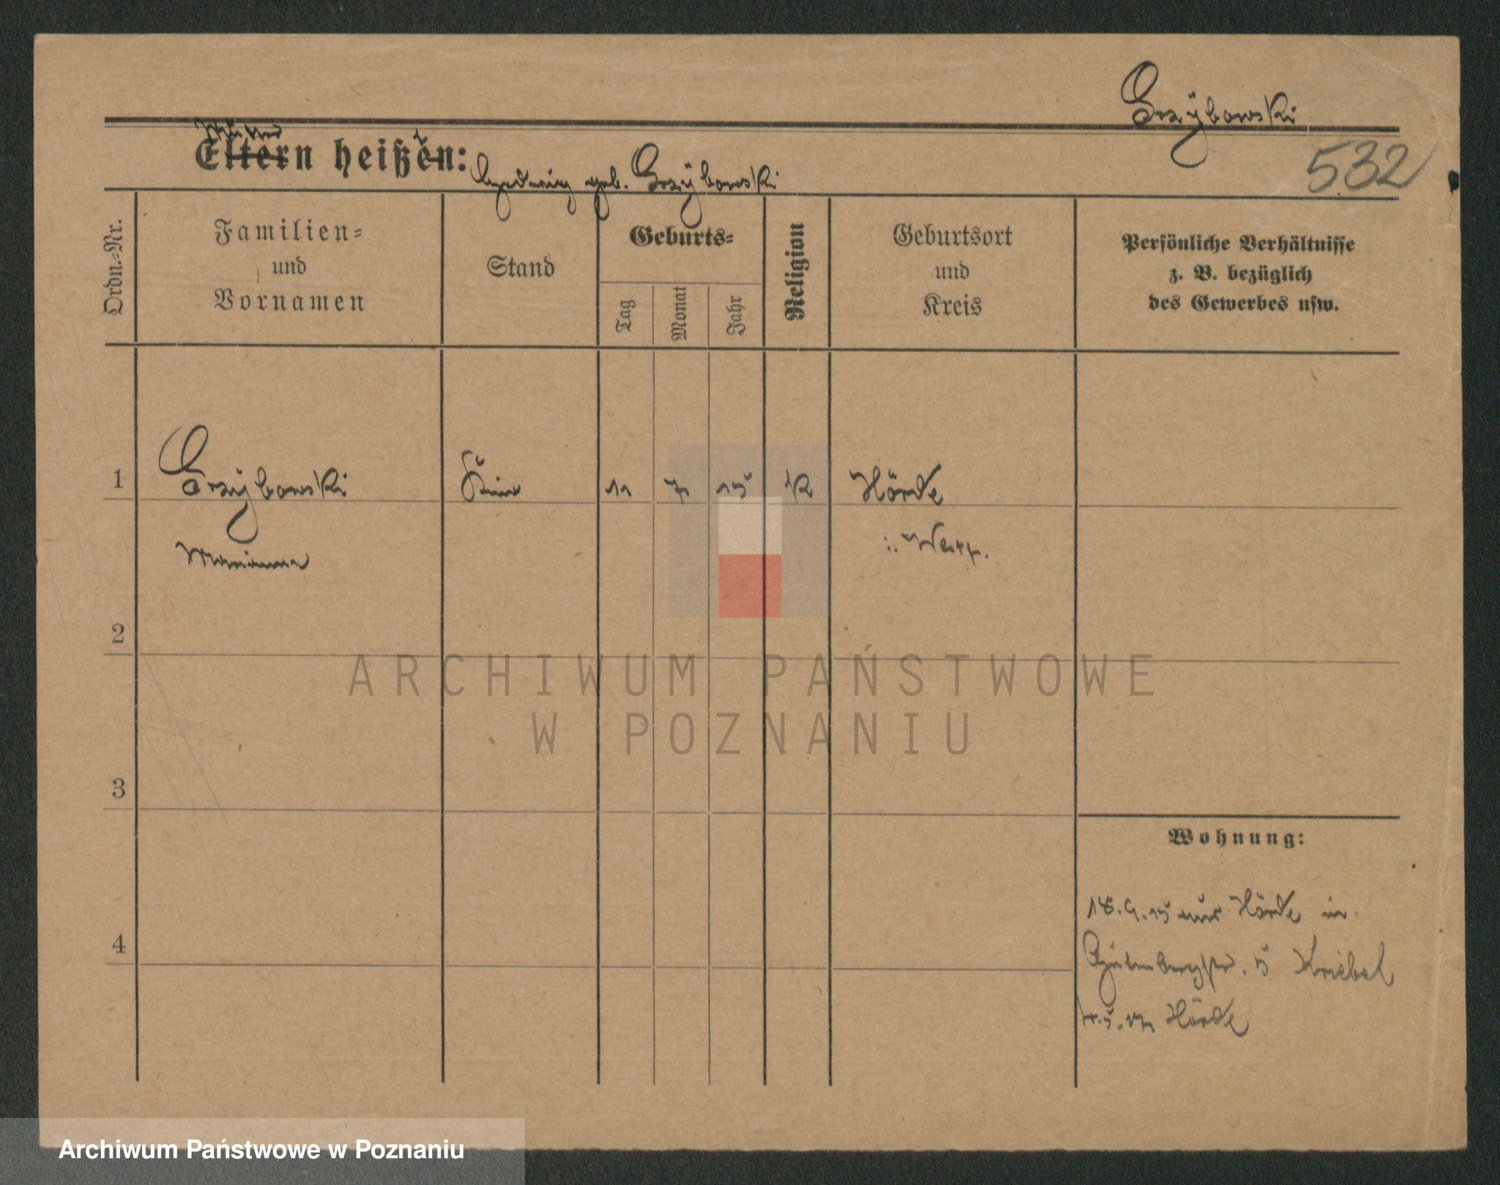 Grzÿbowski
532
Mutter
Eltern heißen:
Hedwig geb. Grzÿbowski
Ordn.-Nr.
Familien-
und
Vornamen
Stand
Geburts-
Tag
Monat
Jahr
Religion
Geburtsort
und
Kreis
Persönliche Verhältnisse
z. B. bezüglich
des Gewerbes usw.
1
Grzÿbowski
11
7
15
K
Hörde
i. Westf.
Marianna
2
3
4
Wohnung:
18.9.15 aus Hörde in
5 Kriebel
Hörde
ARCHIWUM PAŃSTWOWE
W POZNANIU
Archiwum Państwowe w Poznaniu